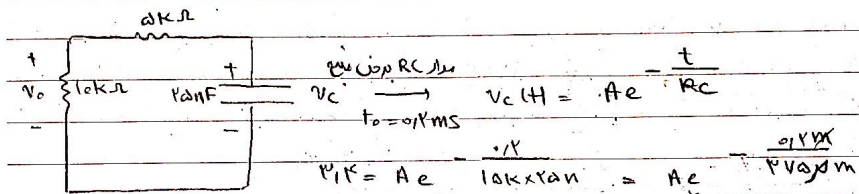 ۵kΩ
+ V₀ - ۱۰kΩ ۲۵nF + - Vc مدار RC بدون منبع → t₀=۰,۲ms Vc(t) = Ae^(-t/RC)
۳,۴ = Ae^(-۰,۲/۱۵k×۲۵n) = Ae^(-۰,۲m/۳۷۵μm)